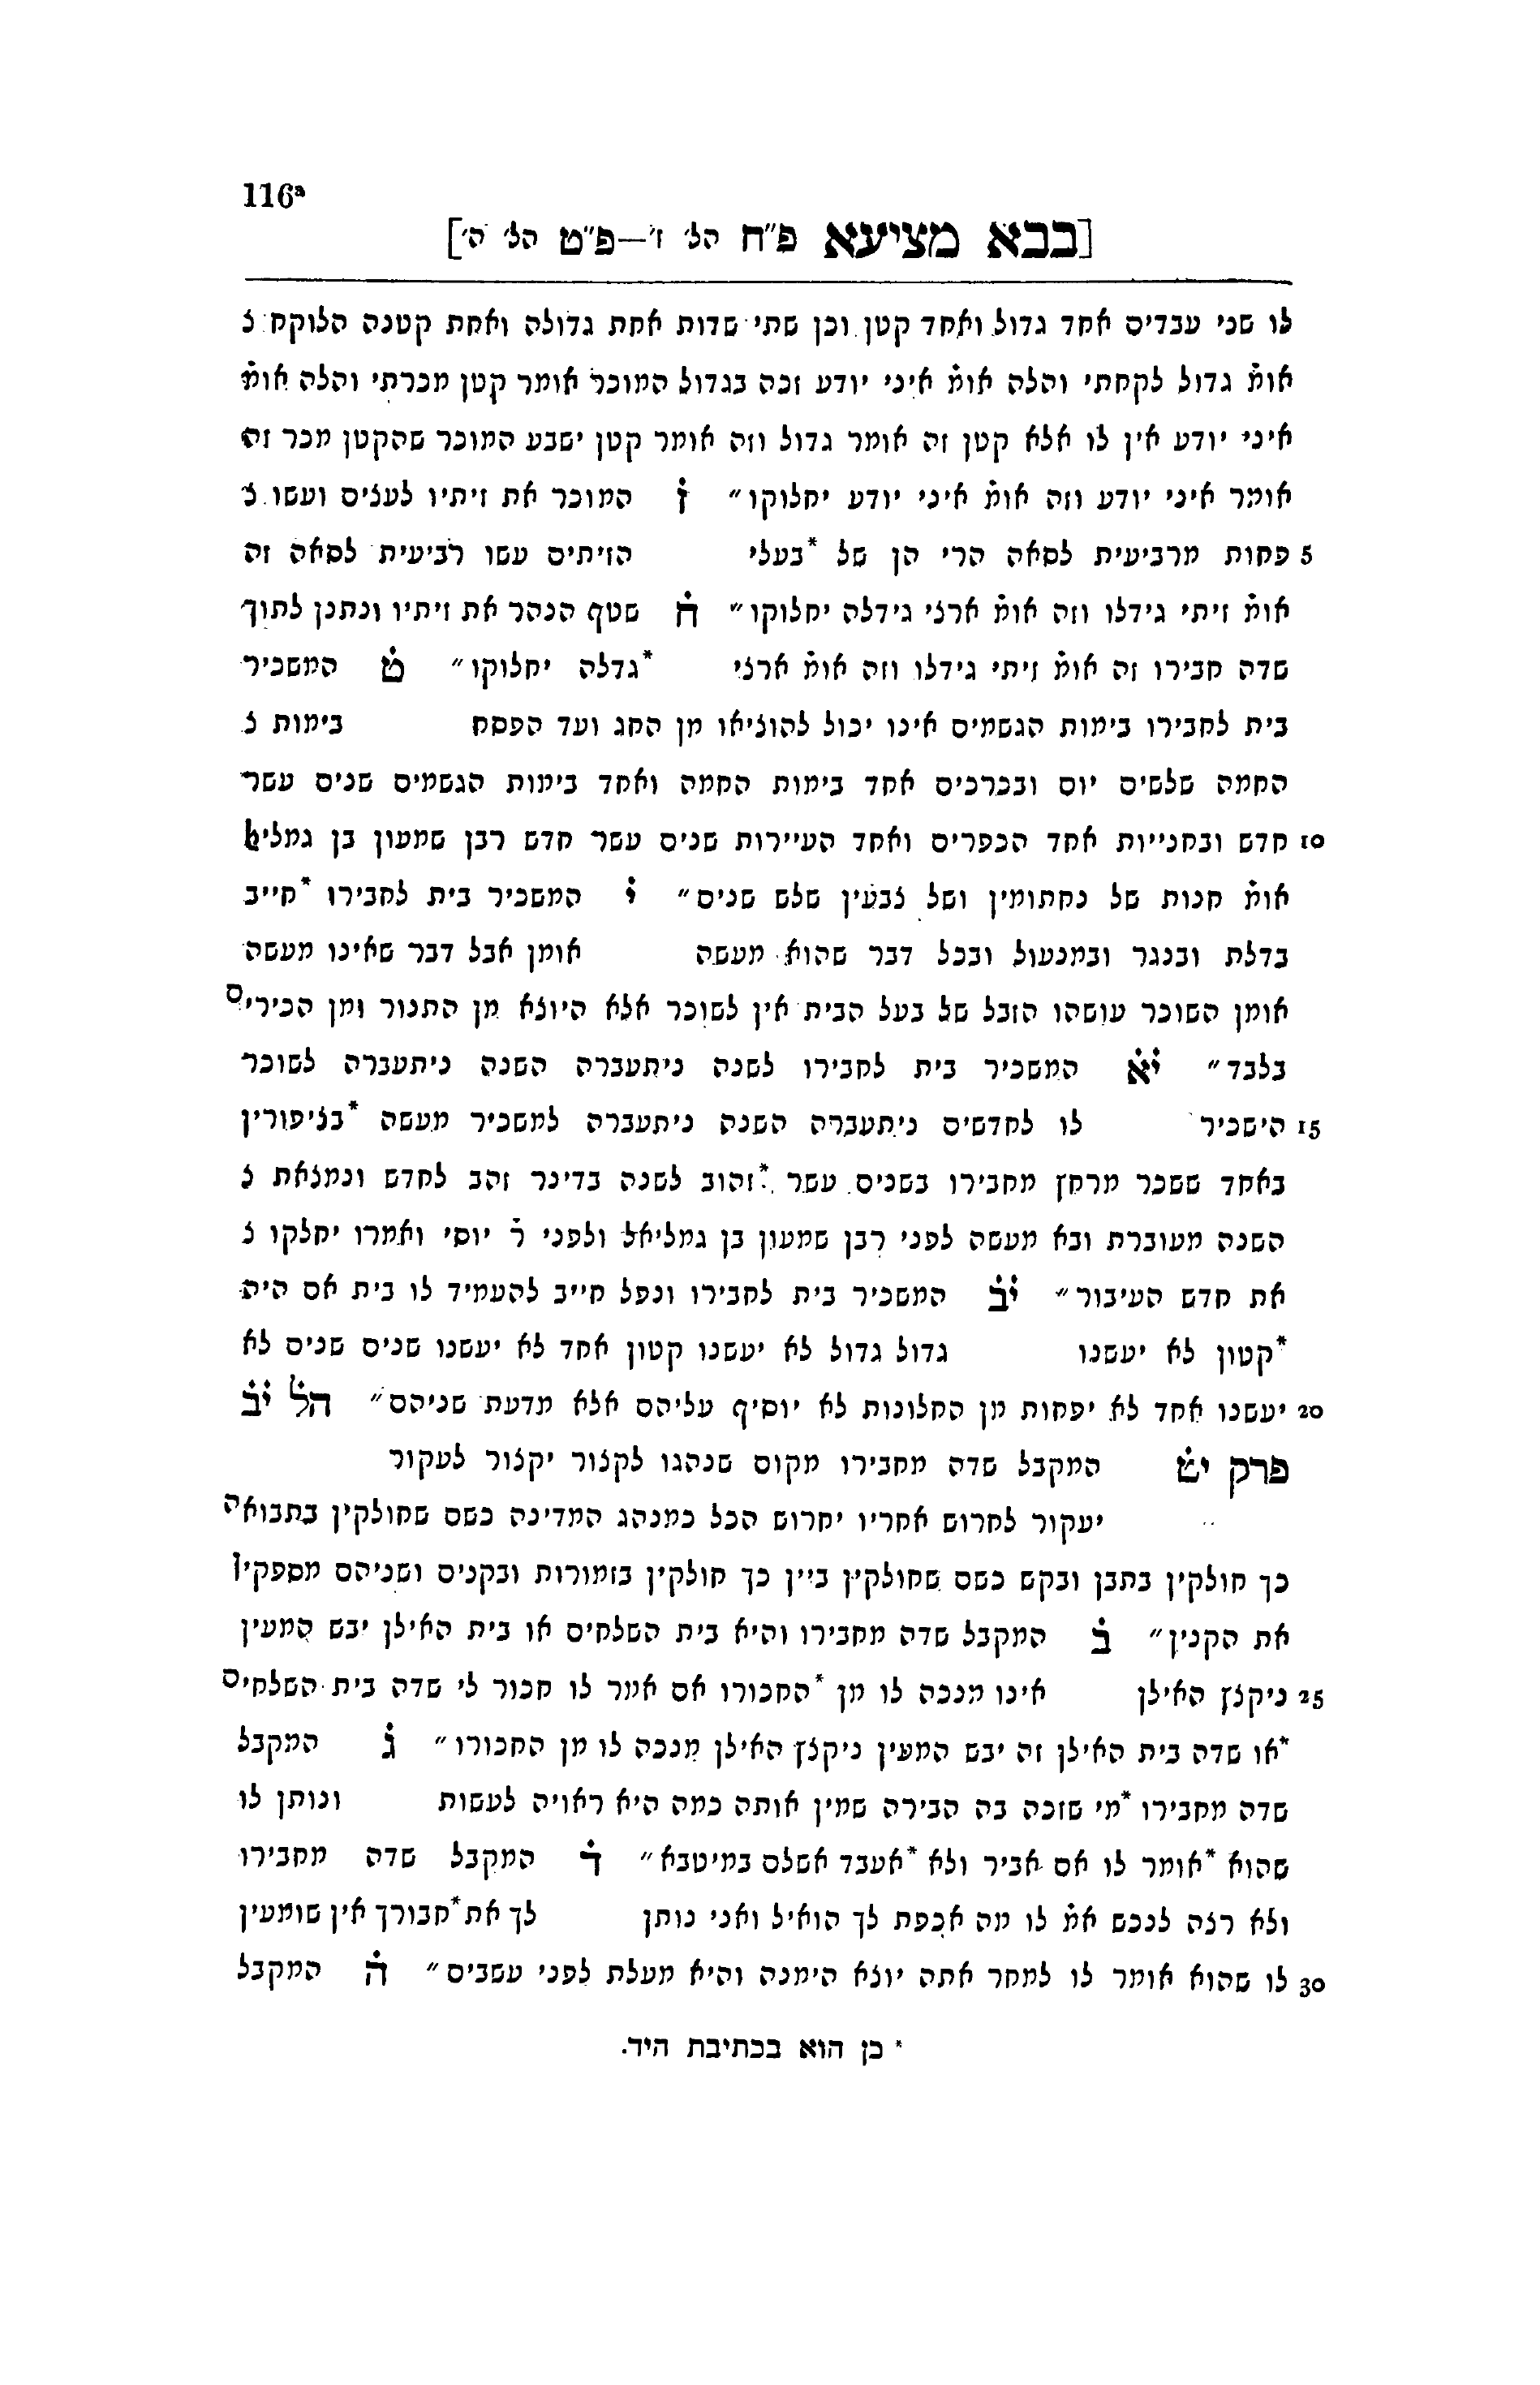 116a
[בבא מציעא פ״ח הל׳ ז׳—פ״ט הל׳ ה׳]
לו שני עבדים אחד גדול ואחד קטן וכן שתי שדות אחת גדולה ואחת קטנה הלוקח צ
אומ̇ גדול לקחתי והלה אומ̇ איני יודע זכה בגדול המוכר אומר קטן מכרתי והלה אומ̇
איני יודע אין לו אלא קטן זה אומר גדול וזה אומר קטן ישבע המוכר שהקטן מכר זה
אומר איני יודע וזה אומ̇ איני יודע יחלוקו״ ז̇ המוכר את זיתיו לעצים ועשו צ
5 פחות מרביעית לסאה הרי הן של *בעלי הזיתים עשו רביעית לסאה זה
אומ̇ זיתי גידלו וזה אומ̇ ארצי גידלה יחלוקו״ ח̇ שטף הנהר את זיתיו ונתנן לתוך
שדה חבירו זה אומ̇ זיתי גידלו וזה אומ̇ ארצי *גדלה יחלוקו״ ט̇ המשכיר
בית לחבירו בימות הגשמים אינו יכול להוציאו מן החג ועד הפסח בימות צ
החמה שלשים יום ובכרכים אחד בימות החמה ואחד בימות הגשמים שנים עשר
10 חדש ובחנייות אחד הכפרים ואחד העיירות שנים עשר חדש רבן שמעון בן גמליאל
אומ̇ חנות של נחתומין ושל צבעין שלש שנים״ י̇ המשכיר בית לחבירו *חייב
בדלת ובנגר ובמנעול ובכל דבר שהוא מעשה אומן אבל דבר שאינו מעשה
אומן השוכר עושהו הזבל של בעל הבית אין לשוכר אלא היוצא מן התנור ומן הכירים
בלבד״ י̇א̇ המשכיר בית לחבירו לשנה ניתעברה השנה ניתעברה לשוכר
15 הישכיר לו לחדשים ניתעברה השנה ניתעברה למשכיר מעשה *בציפורין
באחד ששכר מרחץ מחבירו בשנים עשר *זהוב לשנה בדינר זהב לחדש ונמצאת צ
השנה מעוברת ובא מעשה לפני רבן שמעון בן גמליאל ולפני ר̇ יוסי ואמרו יחלקו צ
את חדש העיבור״ י̇ב̇ המשכיר בית לחבירו ונפל חייב להעמיד לו בית אם היה
*קטון לא יעשנו גדול גדול לא יעשנו קטון אחד לא יעשנו שנים שנים לא
20 יעשנו אחד לא יפחות מן החלונות לא יוסיף עליהם אלא מדעת שניהם״ הל̇ י̇ב̇
פרק יט̇ המקבל שדה מחבירו מקום שנהגו לקצור יקצור לעקור
יעקור לחרוש אחריו יחרוש הכל כמנהג המדינה כשם שחולקין בתבואה
כך חולקין בתבן ובקש כשם שחולקין ביין כך חולקין בזמורות ובקנים ושניהם מספקין
את הקנין״ ב̇ המקבל שדה מחבירו והיא בית השלחים או בית האילן יבש המעין
25 ניקצץ האילן אינו מנכה לו מן *החכורו אם אמר לו חכור לי שדה בית השלחים
*או שדה בית האילן זה יבש המעין ניקצץ האילן מנכה לו מן החכורו״ ג̇ המקבל
שדה מחבירו *מי שזכה בה הבירה שמין אותה כמה היא ראויה לעשות ונותן לו
שהוא *אומר לו אם אביר ולא *אעבד אשלם במיטבא״ ד̇ המקבל שדה מחבירו
ולא רצה לנכש אמ̇ לו מה אכפת לך הואיל ואני נותן לך את *חבורך אין שומעין
30 לו שהוא אומר לו למחר אתה יוצא הימנה והיא מעלת לפני עשבים״ ה̇ המקבל
* כן הוא בכתיבת היד.